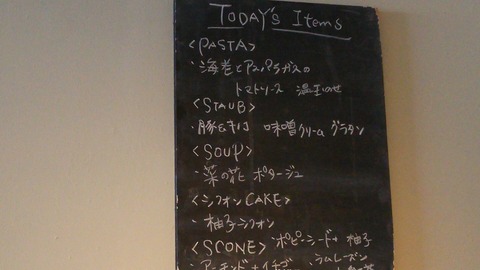 TODAY's Items
<PASTA>
・海老とアスパラガスの
トマトソース 温玉のせ
<STAUB>
・豚&キノコ 味噌クリームグラタン
<SOUP>
・菜の花 ポタージュ
<シフォンCAKE>
・柚子シフォン
<SCONE> ・ポピーシード+柚子
・アーモンド+イチゴ ラムレーズン